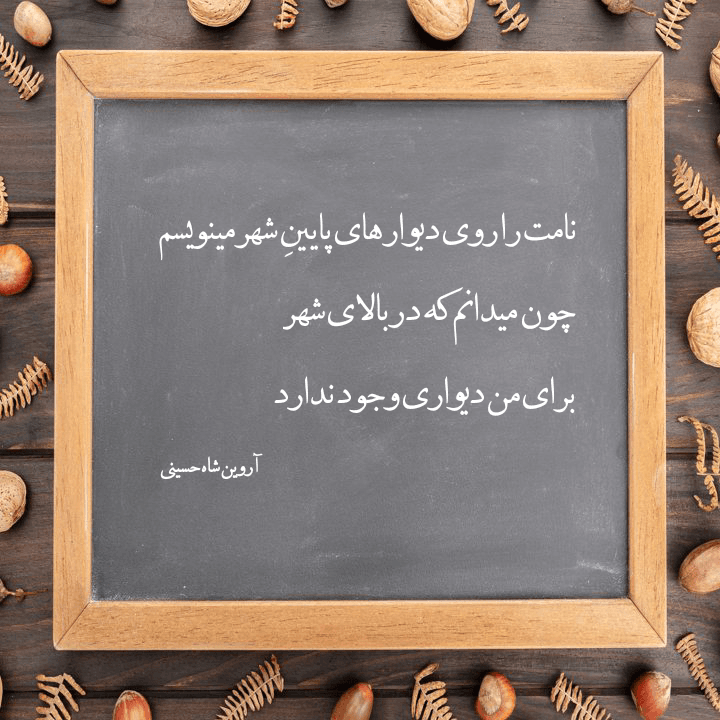 نامت را روی دیوارهای پایینِ شهر مینویسم
چون میدانم که در بالای شهر
برای من دیواری وجود ندارد
آروین شاه حسینی